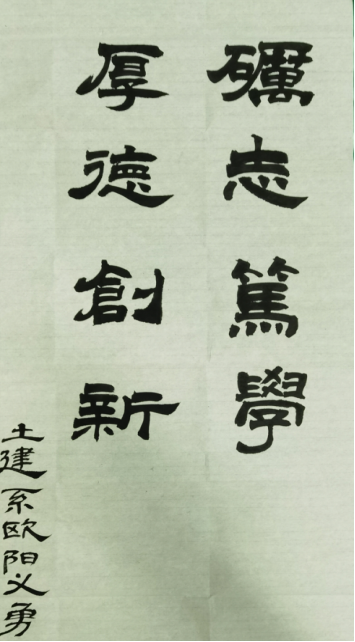 礪志篤學
厚德創新
土建系欧阳义勇